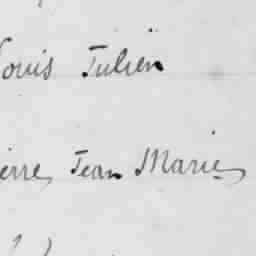 Louis Julien
ierre Jean Marie